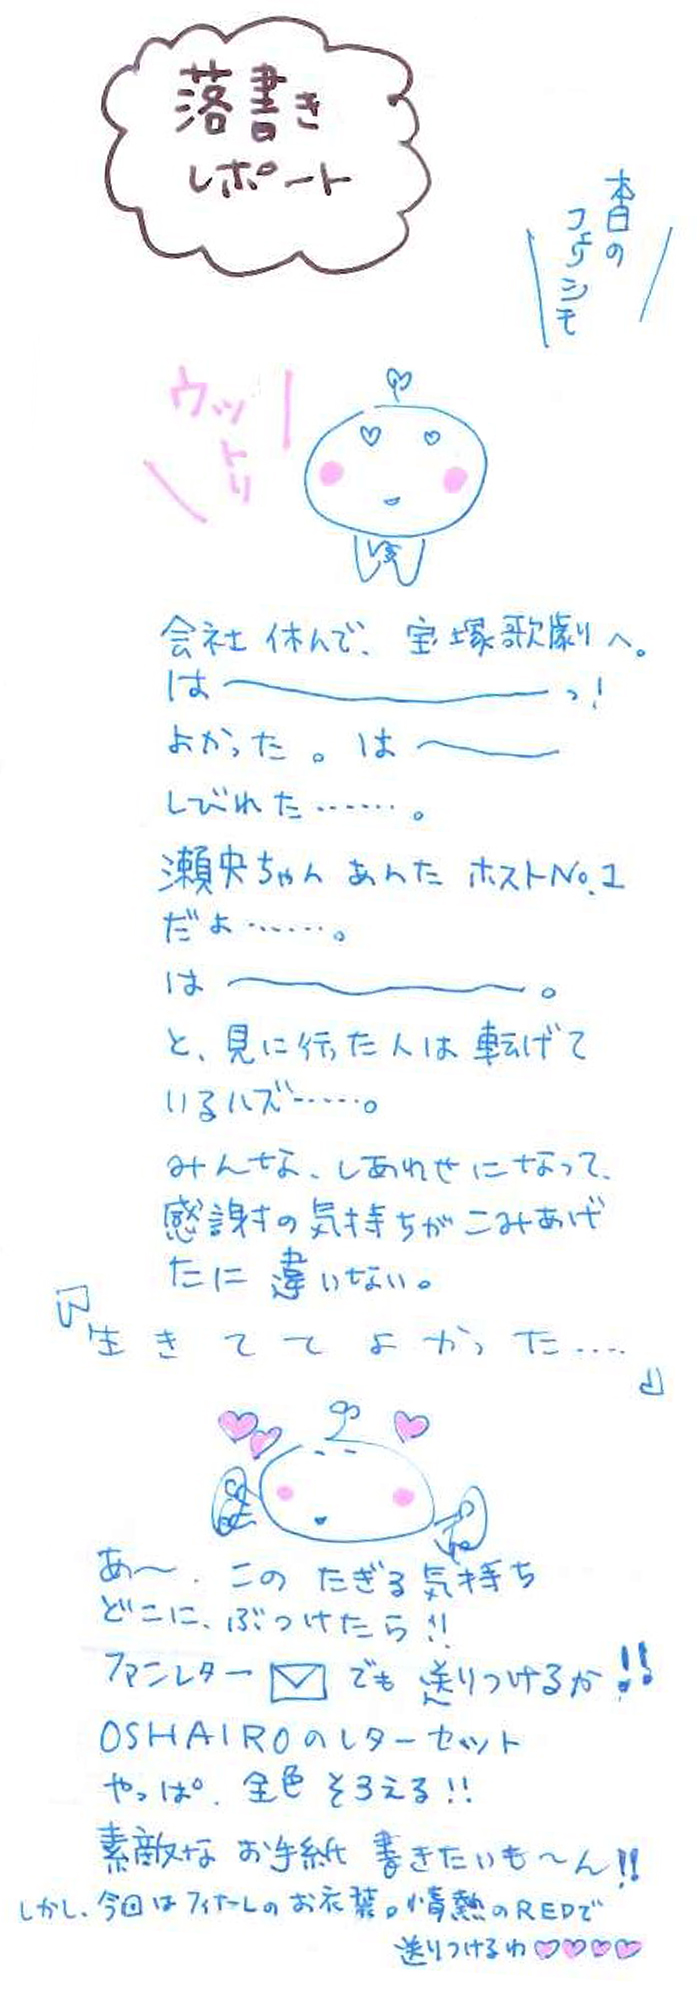 落書き
レポート
本日の
フェリシモ
ウットリ
会社 休んで、宝塚歌劇へ。
は〜〜〜〜〜っ!
よかった。は〜〜
しびれた……。
瀬央ちゃん あんた ホストNo.1
だよ……。
は〜〜〜〜。
と、見に行った人は 転げて
いるハズ……。
みんな、しあわせになって、
感謝の気持ちが こみあげ
たに 違いない。
『生きててよかった‥‥』
あ〜、この たぎる気持ち
どこに、ぶつけたら!!
ファンレター でも 送りつけるか!!
OSHAIROのレターセット
やっぱ、全色 そろえる!!
素敵な お手紙 書きたいも〜ん!!
しかし、今回はフィナーレの お衣装。情熱のREDで
送りつけるわ♡♡♡♡